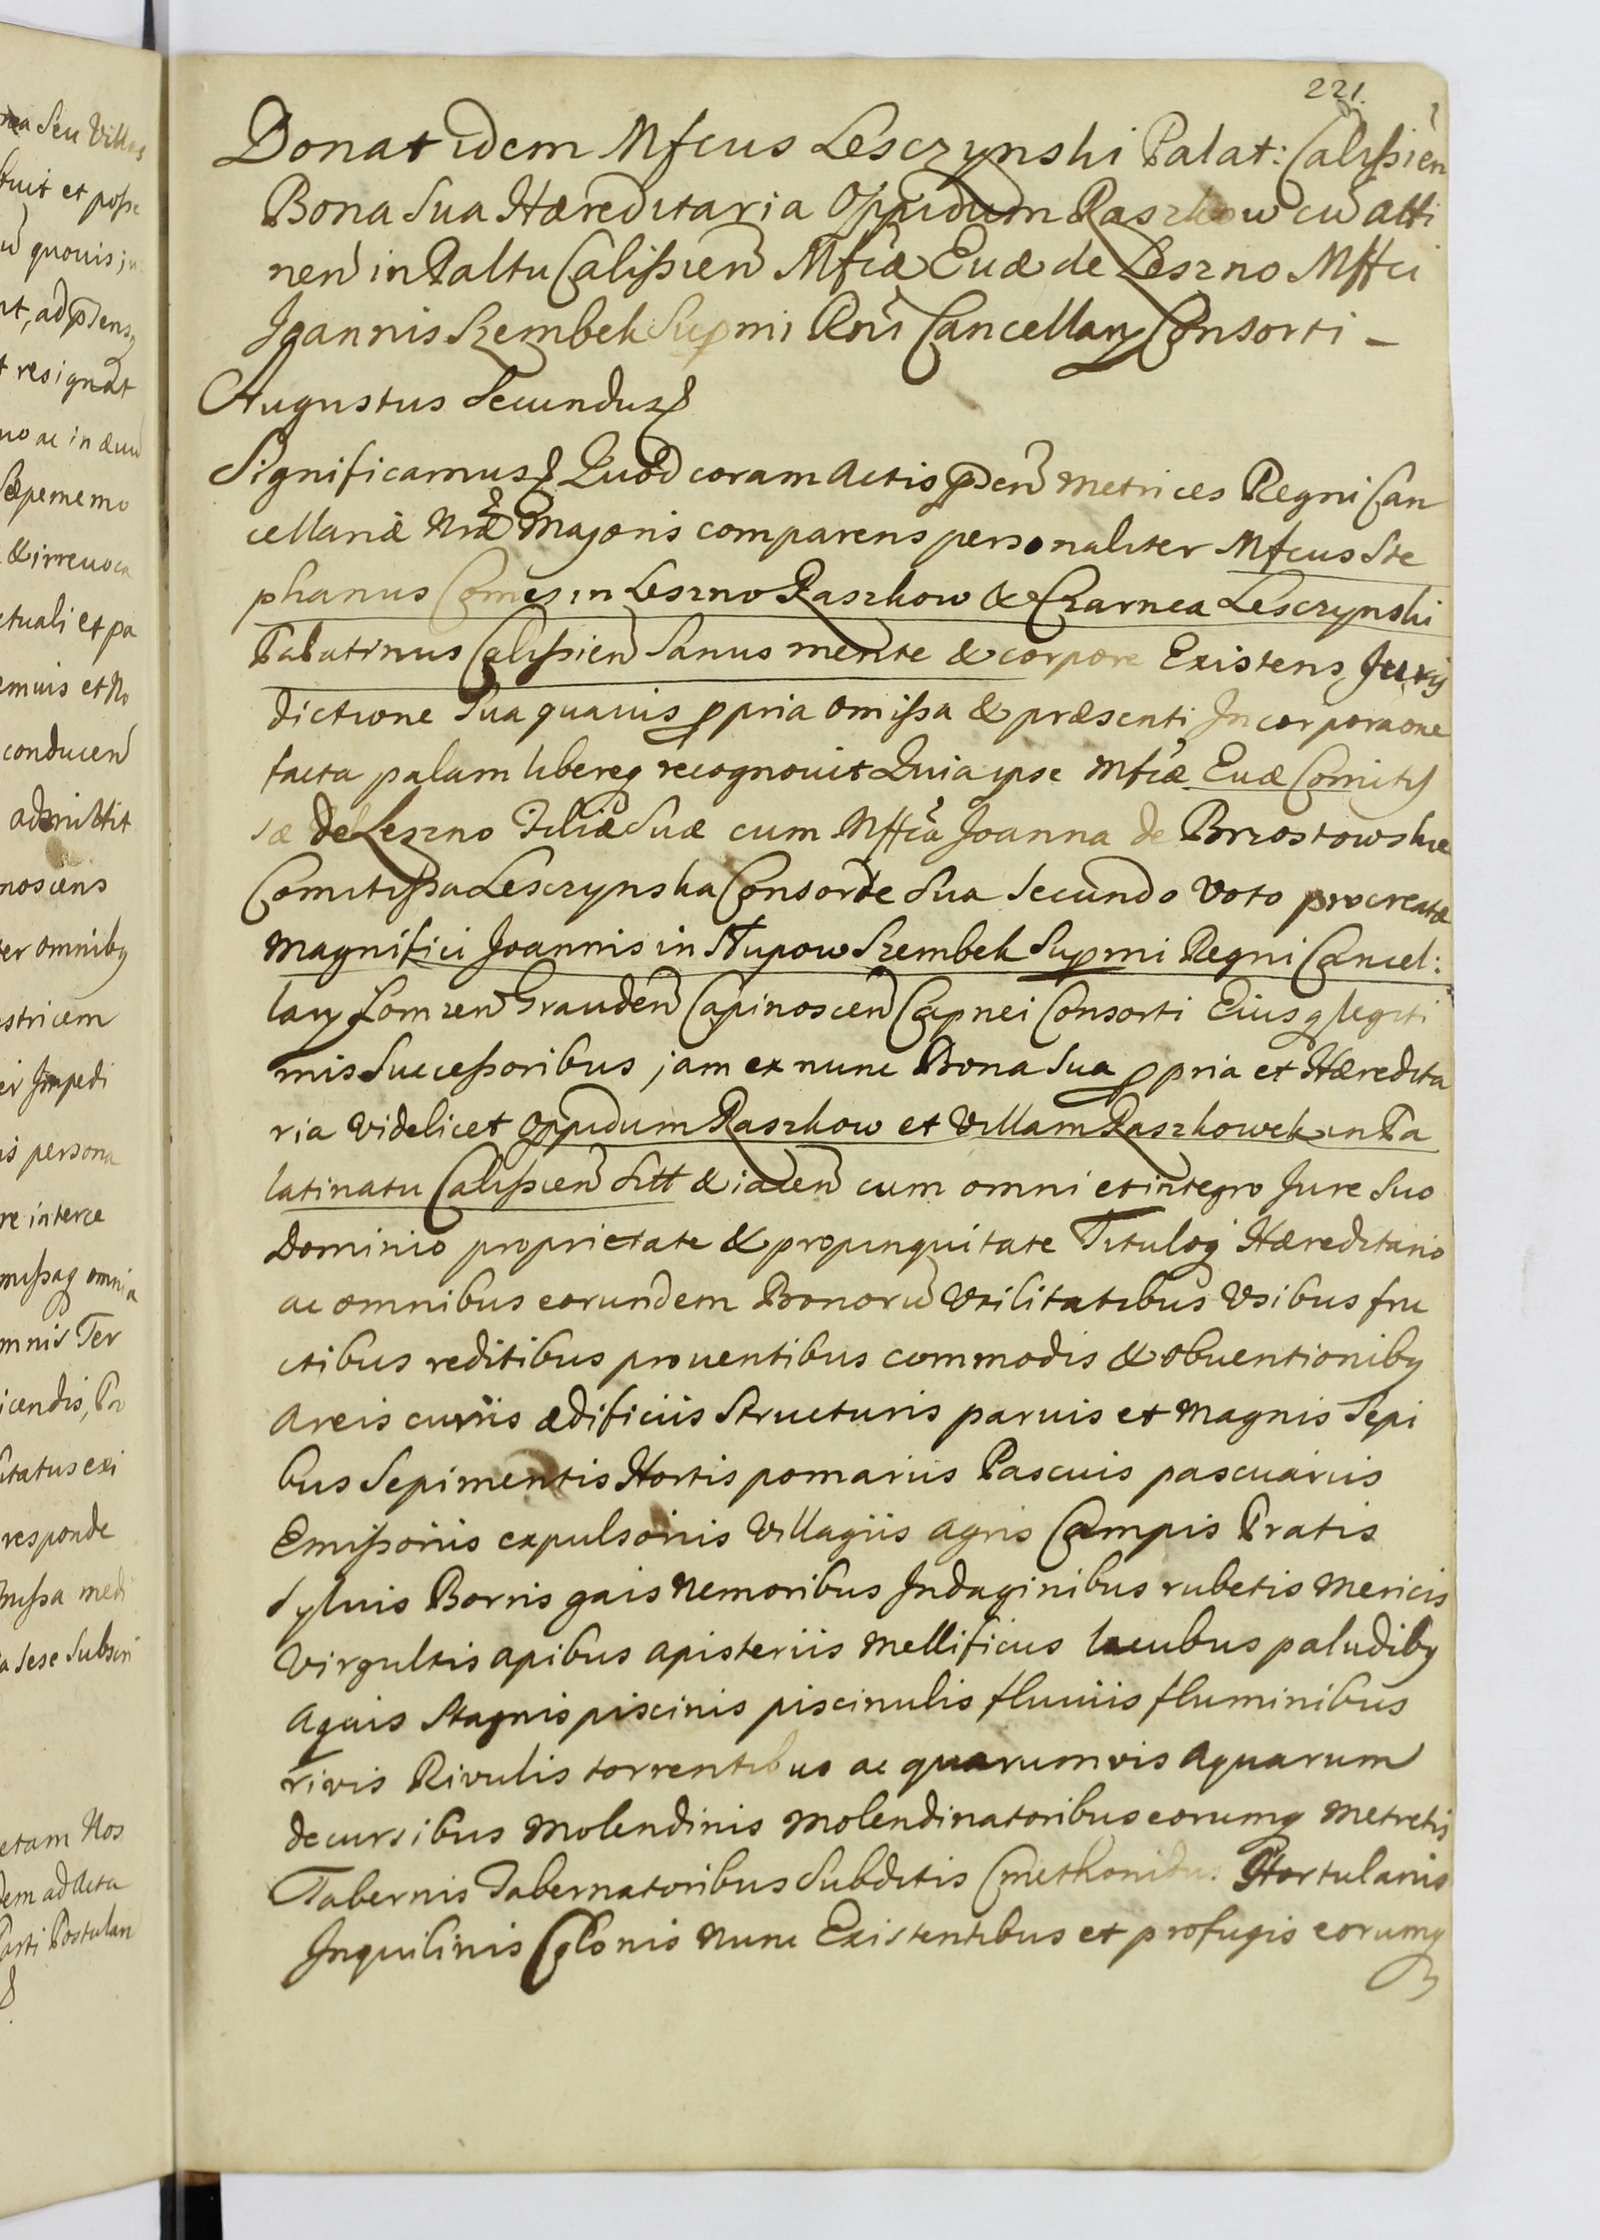 221.
Donat idem Mfcus Lesczynski Palat: Calissień
Bona Sua Hæreditaria Oppidum Raszkow cū atti
neñ in Paltu Calissień Mfcæ Evæ de Leszno Mffci
Joannis Szembek Supmi Rñi Cancellarij Consorti –
Augustus Secundus
Significamus Quod coram Actis pdeñ Metrices Regni Can
cellariæ Nræ Majoris comparens personaliter Mfcus Ste
phanus Comes in Leszno Raszkow & Czarnca Lesczynski
Palatinus Calissień Sanus mente & corpore Existens, Juris
dictione Sua quavis ppria omissa & præsenti Incorporaone
facta palam libereq recognovit Quia ipse Mfcæ Evæ Comitis
sæ de Leszno Filiæ Suæ cum Mffca Joanna de Brzostowskie
Comitissa Lesczynska Consorte Sua Secundo Voto procreatæ
Magnifici Joannis in Słupow Szembek Supmi Regni Cancel:
larij Lomzeñ Graudeñ Capinosceñ Capnei Consorti Eiusq legiti
mis Successoribus jam ex nunc Bona Sua ppria et Hæredita
ria videlicet Oppidum Raszkow et Villam Raszkowek in Pa
latinatu Calissień Sitt & iaceñ cum omni et integro Jure Suo
Dominio proprietate & propinquitate Tituloq Hæreditario
ac omnibus eorundem Bonorū Utilitatibus Usibus fru
ctibus reditibus proventibus commodis & obventionibq
Areis curiis ædificiis Structuris parvis et Magnis Sepi
bus Sepimentis Hortis pomariis Pascuis pascuariis
Emissoriis expulsoriis Villagiis Agris Campis Pratis
Sylvis Borris gais Nemoribus Indaginibus rubetis Mericis
Virgultis apibus apisteriis Mellificiis lacubus paludibq
Aquis Stagnis piscinis piscinulis fluviis fluminibus
rivis Rivulis torrentibus ac quarumvis Aquarum
decursibus Molendinis Molendinatoribus eorumq Metretis
Tabernis Tabernatoribus Subditis Cmethonibus Hortulanis
Inquilinis Colonis Nunc Existentibus et profugis eorumq